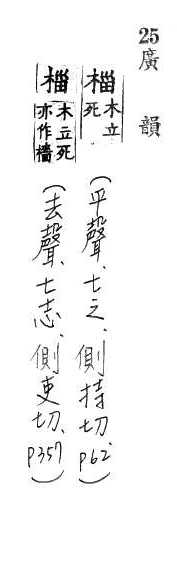 25廣韻
椔木立死(平聲、七之、側持切 p62)
椔木立死亦作檣(去聲、七志、側吏切、p357)